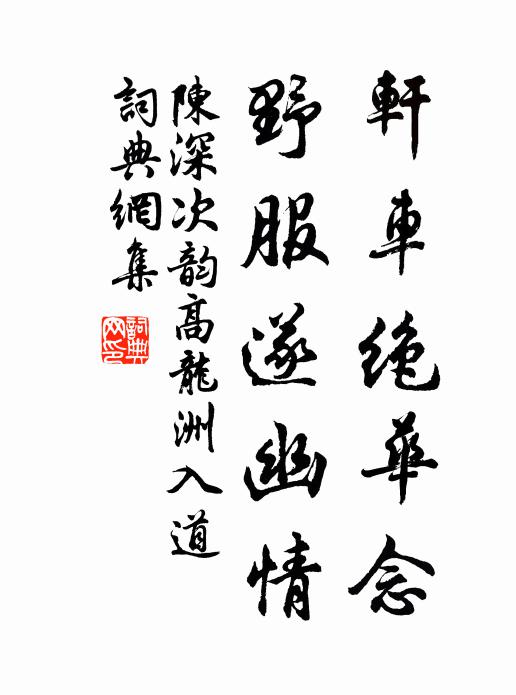 軒車絶華念
野服遂幽情
陳深次韵高龍洲入道
詞典網集
詞典网印